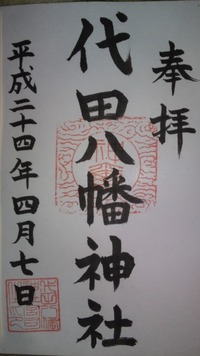 奉拝
代田八幡神社
平成二十四年四月七日